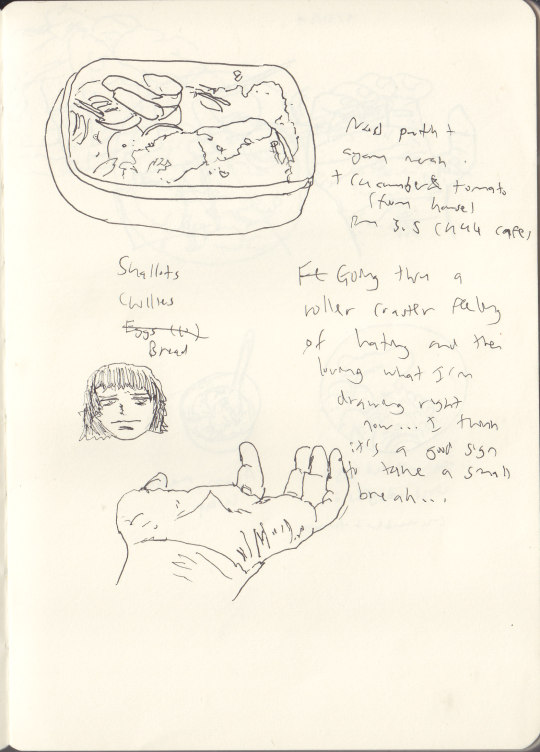 Nasi putih +
ayam merah.
+ Cucumber & tomato
(from house)
Rm 3.5 (
Shallots
Chillies
Eggs
Bread
Going thru a
roller coaster feeling
of hating and then
loving what I'm
drawing right
now... I think
it's a good sign
to take a small
break...